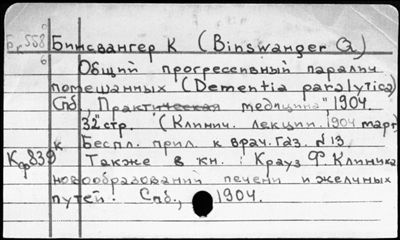 Бр558
6
Бинсвангер К (Binswanger O.)
Общий прогрессивный паралич
помешанных (Dementia paralytica)
Спб., "Практическая медицина" 1904.
32 стр. (Клинич. лекции. 1904 март)
к Беспл. прил. к врач. газ. №13
Кф839 Также в кн.: Крауз Ф. Клиника
новообразований печени и желчных
путей! Спб., 1904.